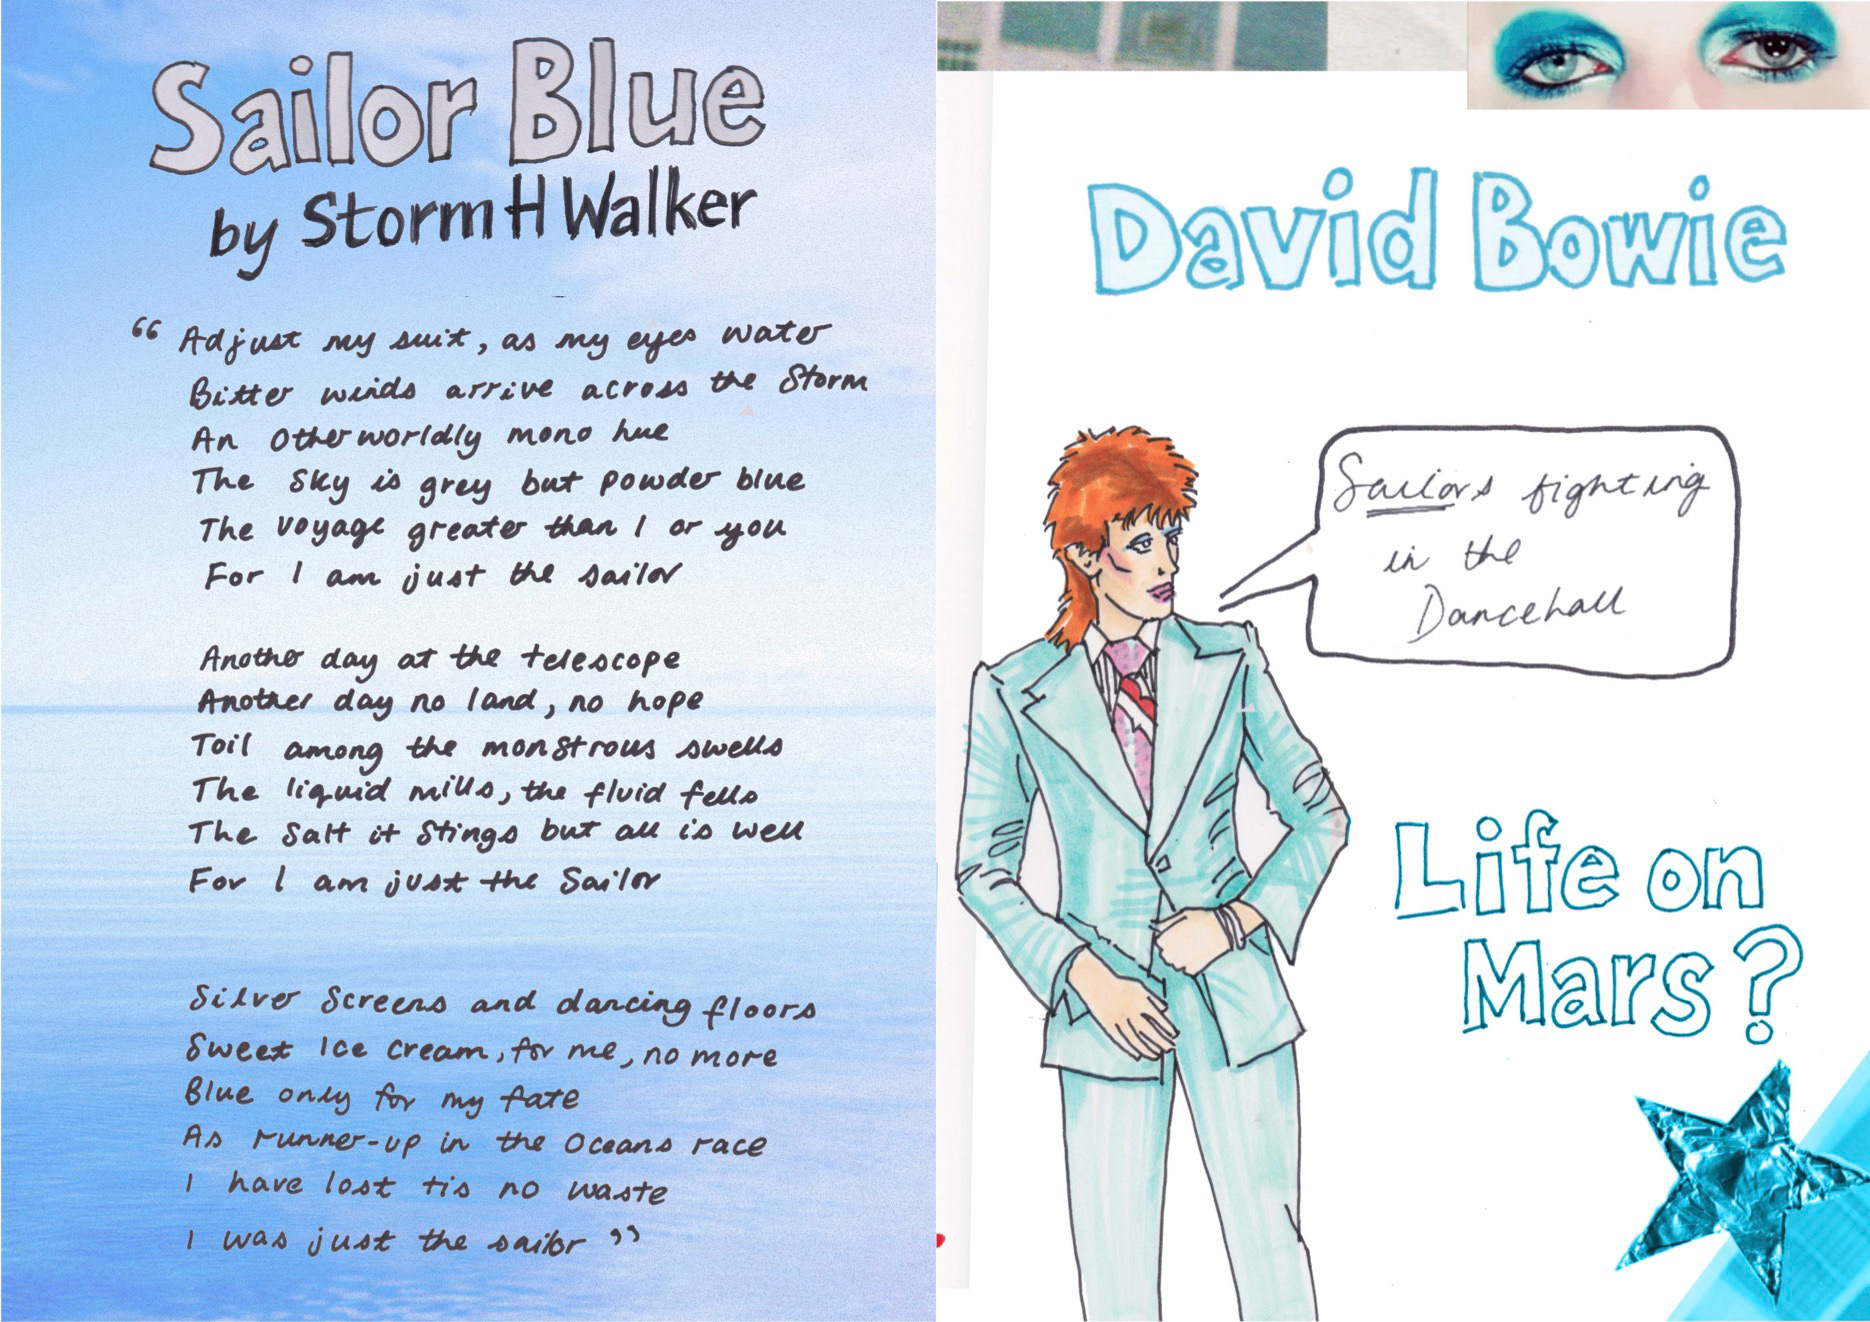 Sailor Blue
by Storm H Walker
“ Adjust my suit, as my eyes water
Bitter winds arrive across the Storm
An Otherworldly mono hue
The Sky is grey but powder blue
The voyage greater than I or you
For I am just the sailor
Another day at the telescope
Another day no land, no hope
Toil among the monstrous swells
The liquid mills, the fluid fells
The Salt it Stings but all is well
For I am just the Sailor
Silver Screens and dancing floors
Sweet Ice cream, for me, no more
Blue only for my fate
As runner-up in the Oceans race
I have lost tis no waste
I was just the sailor ”
David Bowie
Sailors fighting
in the
Dancehall
Life on
Mars?